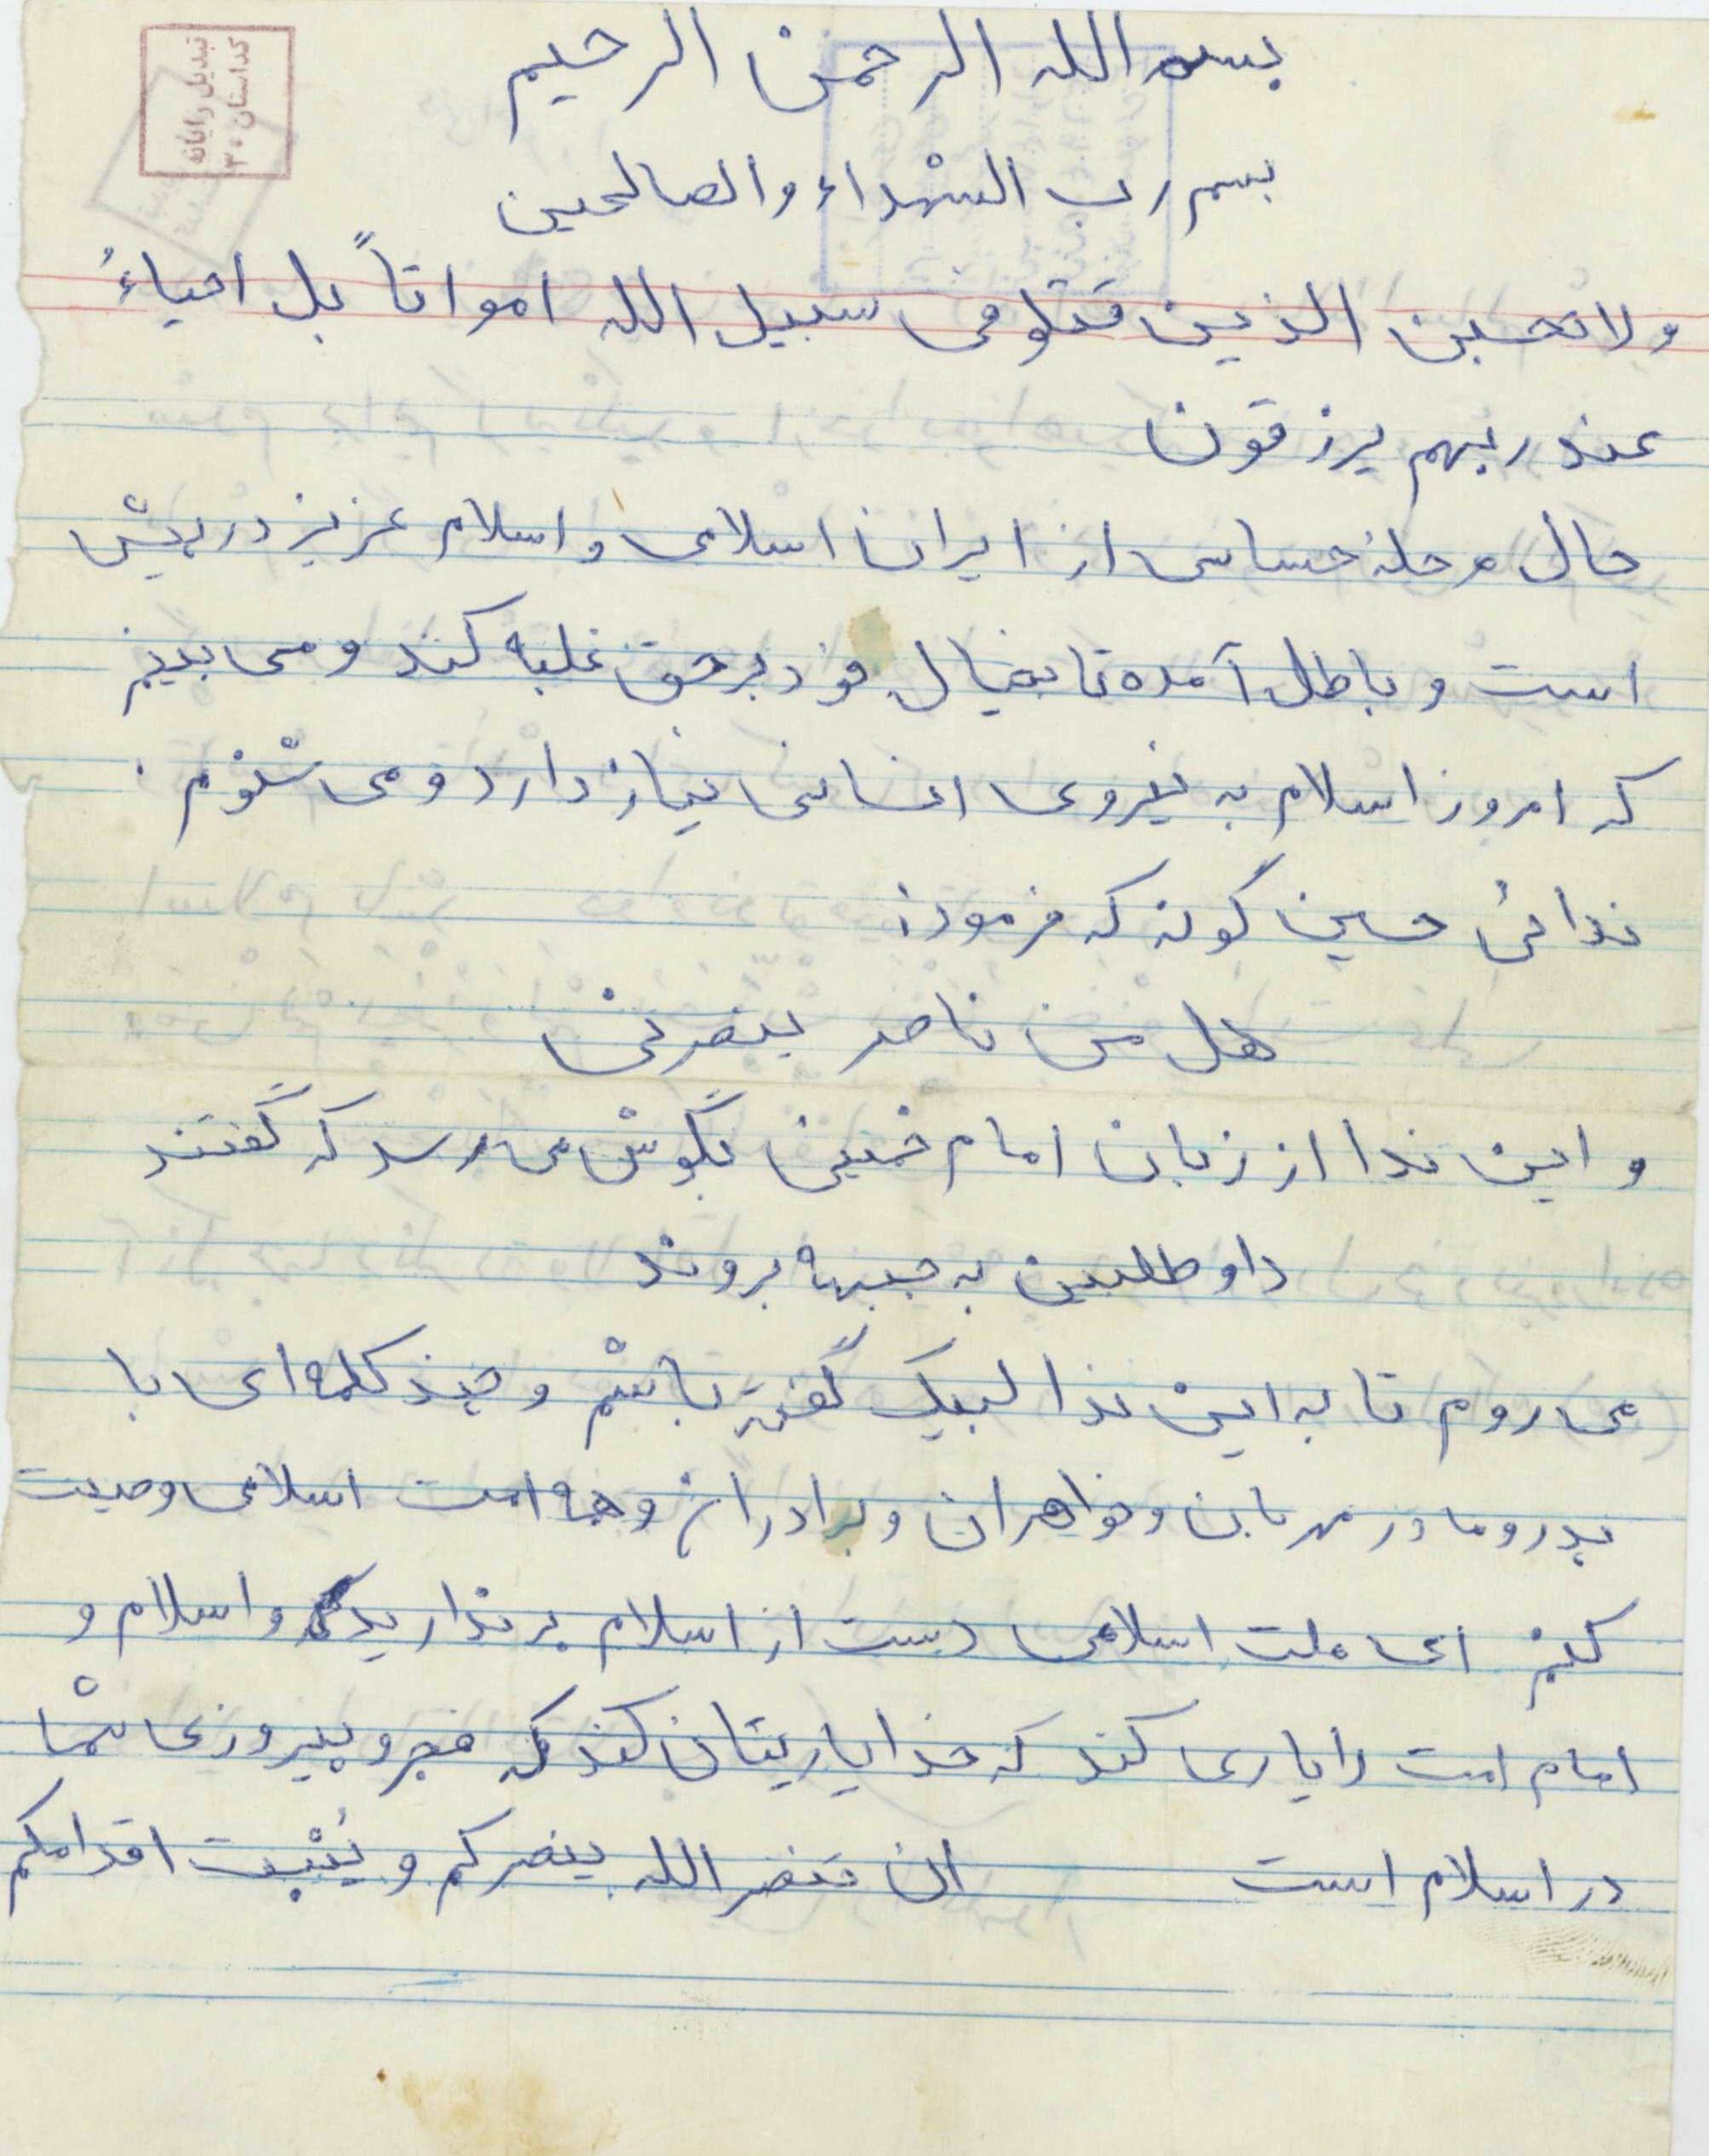 بسم الله الرحمن الرحیم
بسم رب الشهداء والصالحین
ولا تحسبن الذین قتلو فی سبیل الله امواتاً بل احیاءُ
عند ربهم یرزقون
حال مرحله حساسی از ایران اسلامی و اسلام عزیز در پیش
است و باطل آمده تا بخیال خود بر حق غلبه کند و می بینم
که امروز اسلام به نیروی انسانی نیاز دارد و می شنوم :
ندائی حسین گونه که فرمود :
هل من ناصر ینصرنی
و این ندا از زبان امام خمینی بگوش می رسد که گفتند
داوطلبین به جبهه بروند
می روم تا به این ندا لبیک گفته باشم و چند کلمه ای با
پدر و مادر مهربان و خواهران و برادرانم و همه امت اسلامی وصیت
کنم ای ملت اسلامی دست از اسلام بر ندارید و اسلام و
امام امت را یاری کند که خدا یاریتان کند که فجر و پیروزی شما
در اسلام است ان تنصر الله ینصرکم و یُثبت اقدامکم
تبدیل رایانه
کداستان ۳۰